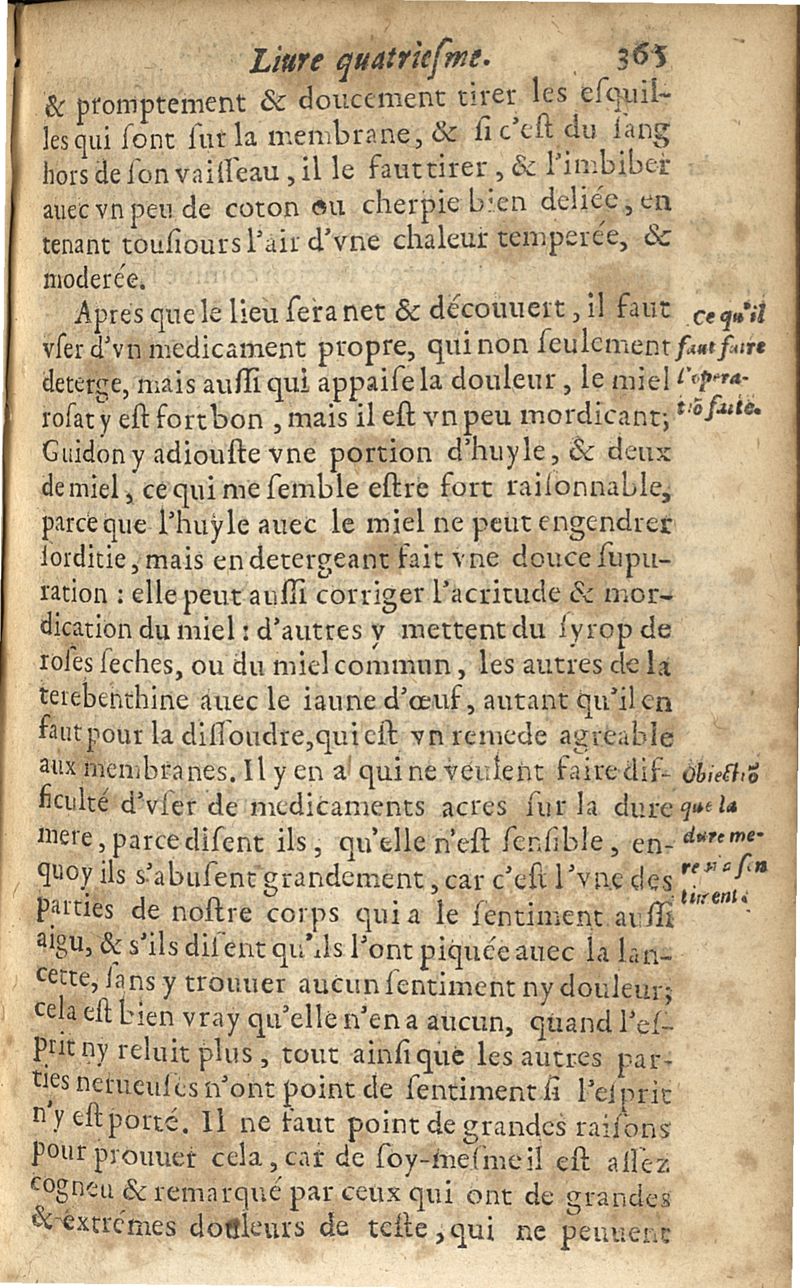 Liure quatriesme. 365
& promptement & doucement tirer les esquil-
les qui sont sur la membrane, & si c'est du sang
hors de son vaisseau, il le faut tirer, & l'imbiber
auec vn peu de coton ou cherpie bien deliée, en
tenant tousiours l'air d'vne chaleur temperée, &
moderée.
Apres que le lieu sera net & découuert, il faut
vser d'vn medicament propre, qui non seulement
deterge, mais aussi qui appaise la douleur, le miel
rosat y est fort bon, mais il est vn peu mordicant;
Guidon y adiouste vne portion d'huyle, & deux
de miel, ce qui me semble estre fort raisonnable,
parce que l'huyle auec le miel ne peut engendrer
sorditie, mais en detergeant fait vne douce supu-
ration : elle peut aussi corriger l'acritude & mor-
dication du miel : d'autres y mettent du syrop de
roses seches, ou du miel commun, les autres de la
terebenthine auec le iaune d'œuf, autant qu'il en
faut pour la dissoudre, qui est vn remede agreable
aux membranes. Il y en a qui ne veulent faire dif-
ficulté d'vser de medicaments acres sur la dure
mere, parce disent ils, qu'elle n'est sensible, en-
quoy ils s'abusent grandement, car c'est l'vne des
parties de nostre corps qui a le sentiment aussi
aigu, & s'ils disent qu'ils l'ont piquée auec la lan-
cette, sans y trouuer aucun sentiment ny douleur;
cela est bien vray qu'elle n'en a aucun, quand l'es-
prit ny reluit plus, tout ainsi que les autres par-
ties nerueuses n'ont point de sentiment si l'esprit
n'y est porté. Il ne faut point de grandes raisons
pour prouuer cela, car de soy-mesme il est assez
cogneu & remarqué par ceux qui ont de grandes
& extrémes douleurs de teste, qui ne peuuent
ce qu'il
faut faire
l'opera-
tiõ faite.
Obiectiõ
que la
dure me-
re n'a sen
timent.